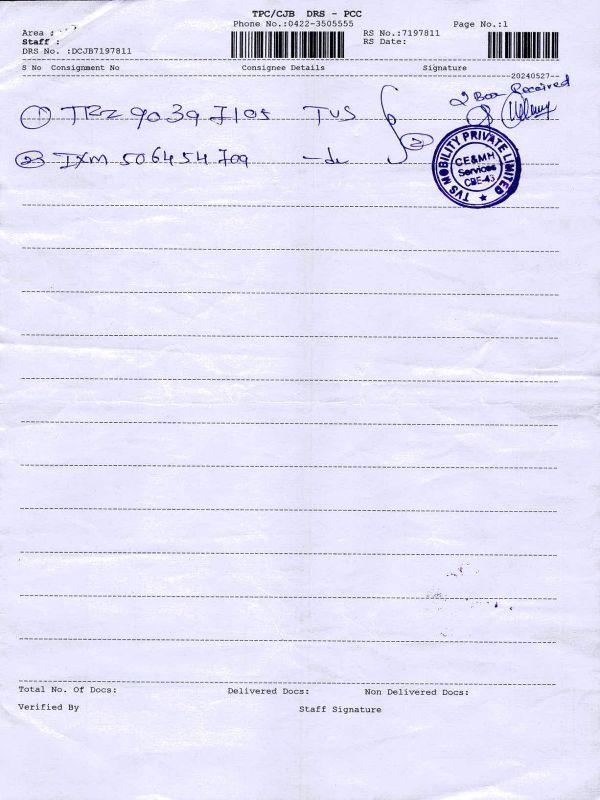 TPC/CJB DRS - PCC
Phone No.:0422-3505555
Page No.:1
Area :
Staff :
DRS No. :DCJB7197811
RS No.:7197811
RS Date:
S No Consignment No Consignee Details Signature
20240527
2 Box Received
1 TRZ 90397105 TVS
2 IXM 506454709 -do
2
TVS MOBILITY PRIVATE LIMITED
CE&MH
Services
CBE-43
Total No. Of Docs: Delivered Docs: Non Delivered Docs:
Verified By Staff Signature